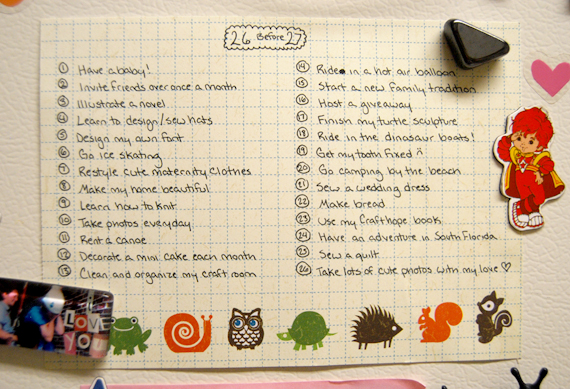 26 Before 27
1 Have a baby!
2 Invite friends over once a month
3 Illustrate a novel
4 Learn to design/sew hats
5 Design my own font
6 Go ice skating
7 Restyle cute maternity clothes
8 Make my home beautiful
9 Learn how to knit
10 Take photos everyday
11 Rent a canoe
12 Decorate a mini cake each month
13 Clean and organize my craft room
14 Ride in a hot air balloon
15 Start a new family tradition
16 Host a giveaway
17 Finish my turtle sculpture
18 Ride in the dinosaur boats!
19 Get my tooth fixed
20 Go camping by the beach
21 Sew a wedding dress
22 Make bread
23 Use my Craft hope book
24 Have an adventure in South Florida
25 Sew a quilt
26 Take lots of cute photos with my love
I LOVE
YOU